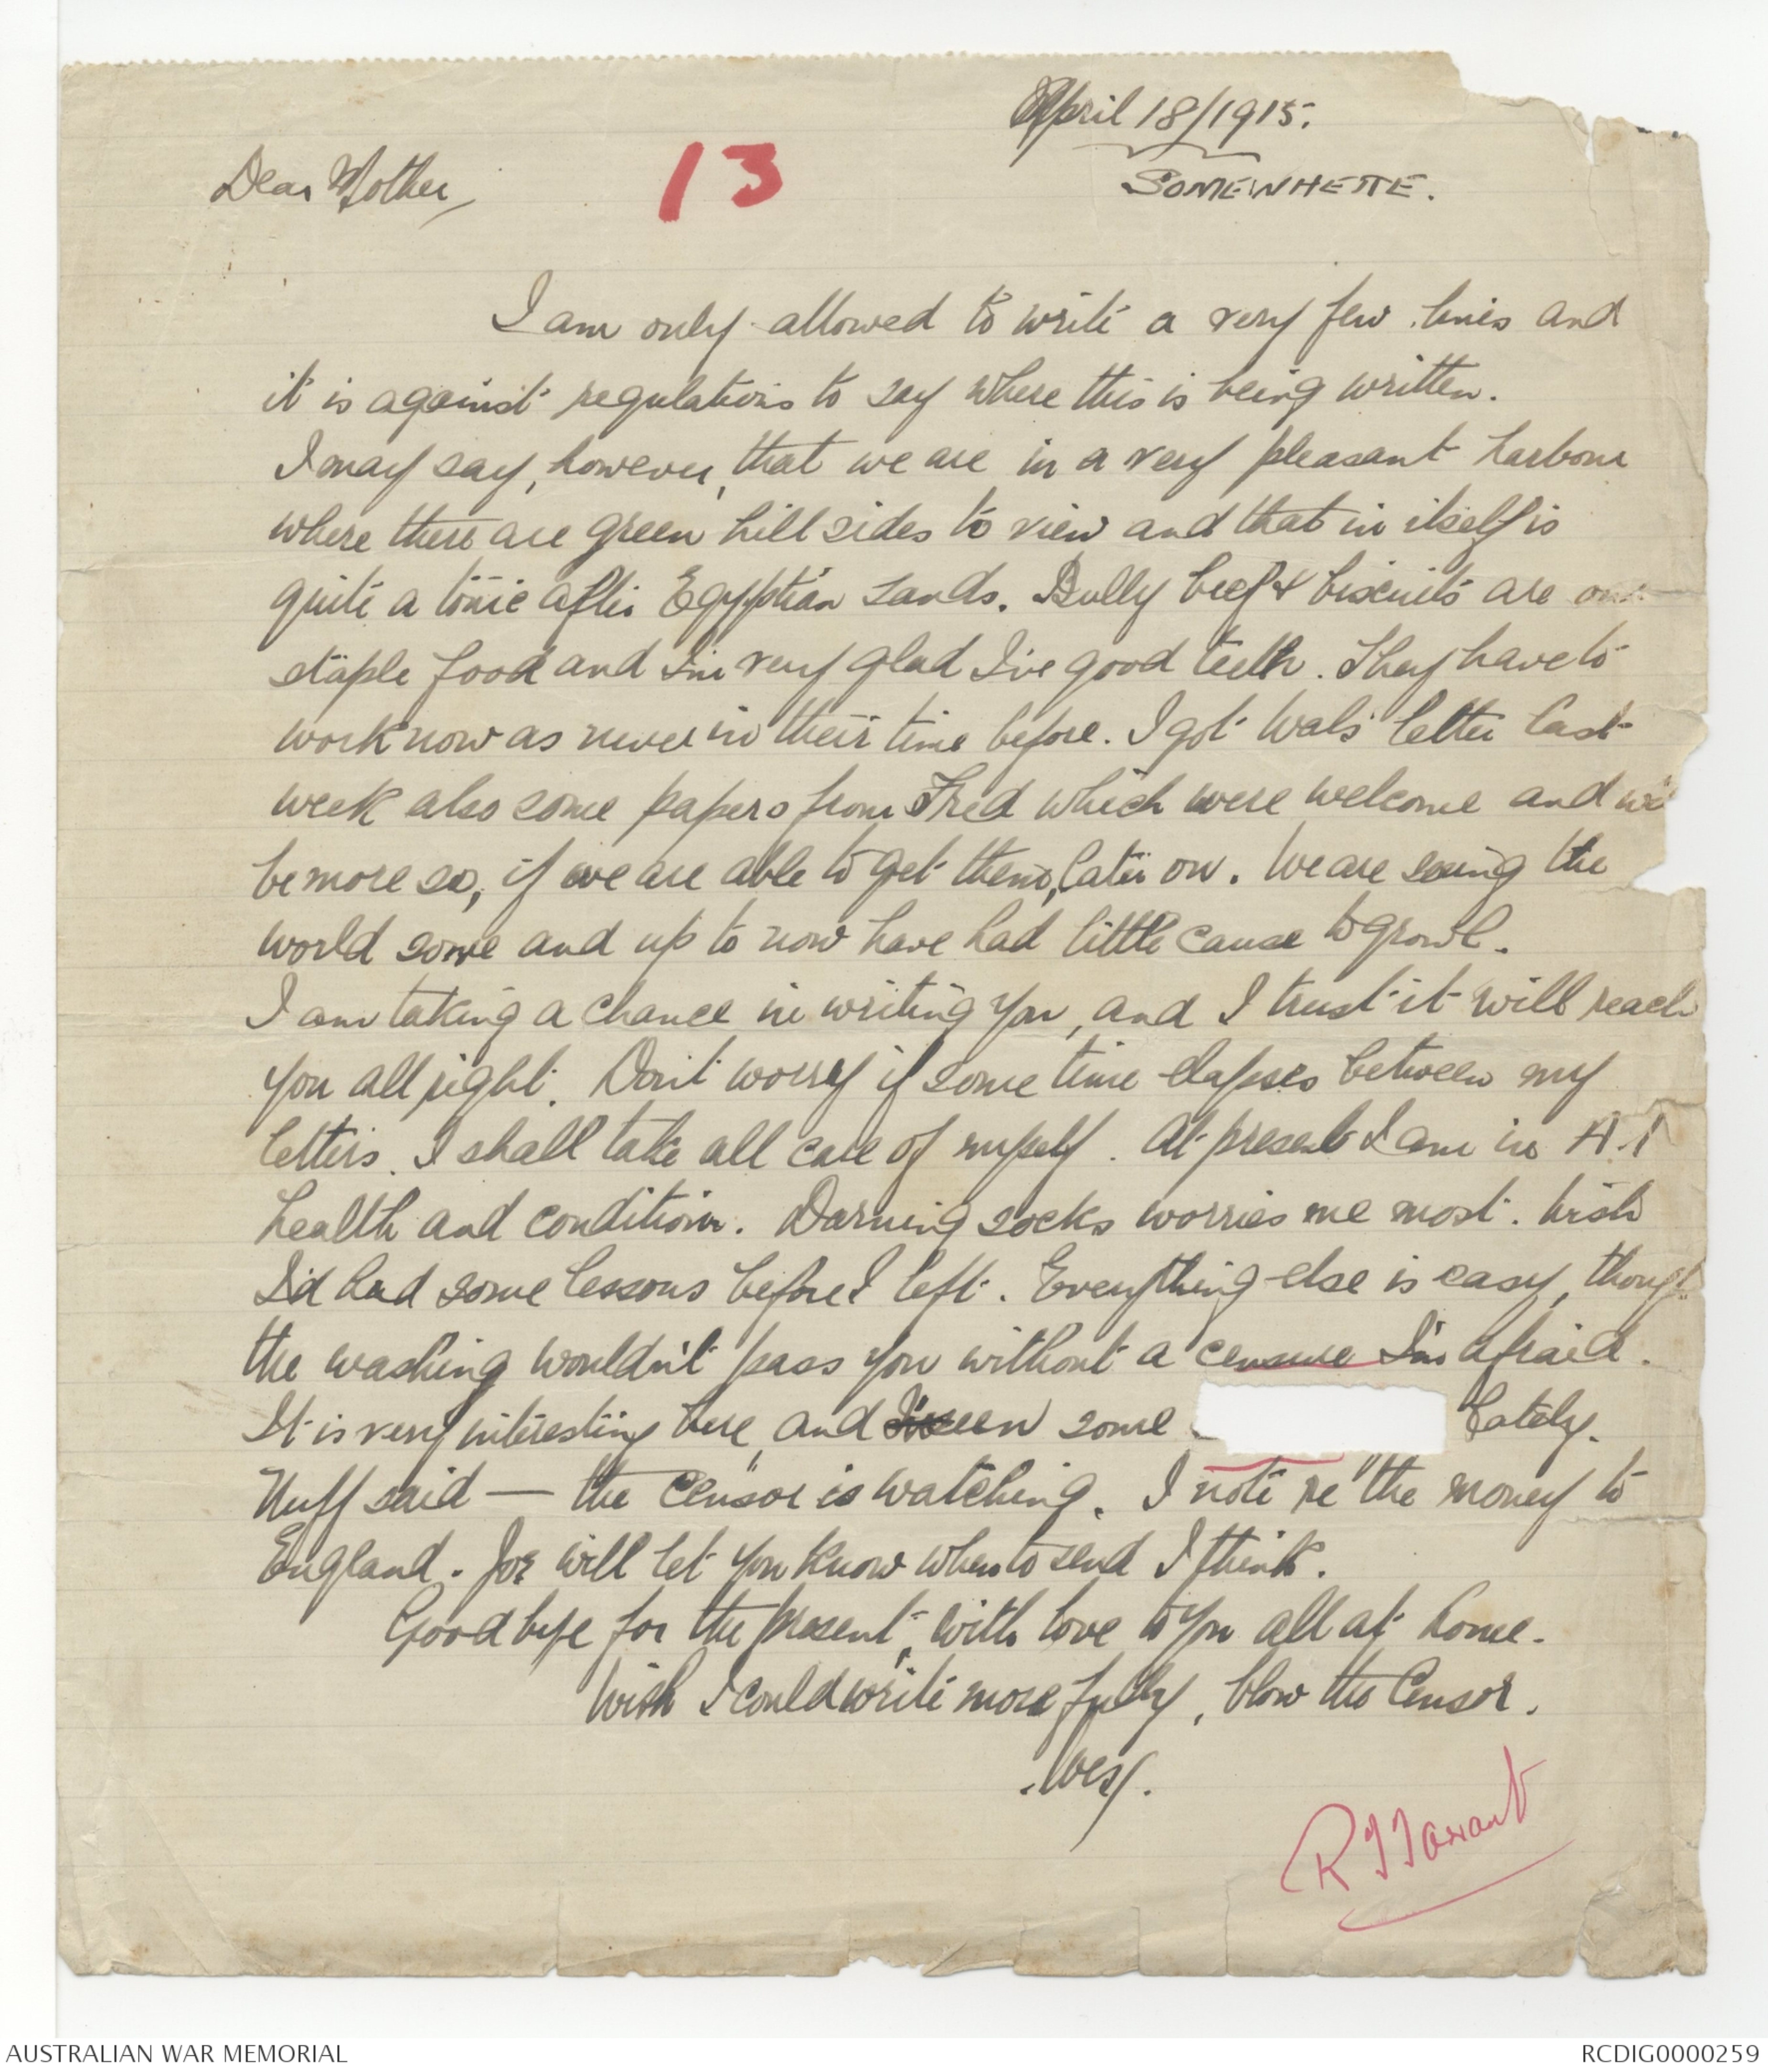 April 18/1915.
Dear Mother,
13
SOMEWHERE.
I am only allowed to write a very few lines and
it is against regulations to say where this is being written.
I may say, however, that we are in a very pleasant harbour
where there are green hill sides to view and that in itself is
quite a tonic after Egyptian sands. Bully beef & biscuits are our
staple food and I'm very glad I've good teeth. They have to
work now as never in their time before. I got Wals' letter last
week also some papers from Fred which were welcome and
be more so, if we are able to get them, later on. We are seeing the
world some and up to now have had little cause to growl.
I am taking a chance in writing you, and I trust it will reach
you all right. Don't worry if some time elapses between my
letters. I shall take all care of myself. At present I am in A.1
health and condition. Darning socks worries me most. Wish
I'd had some lessons before I left. Everything else is easy, though
the washing wouldn't pass you without a censure I'm afraid.
It is very interesting here, and seen some lately.
Nuff said — the "censor" is watching. I note re the money to
England. Joe will let you know when to send I think.
Good bye for the present, with love to you all at home.
Wish I could write more fully, blow the Censor.
Wesy.
R J Tarrant
AUSTRALIAN WAR MEMORIAL
RCDIG0000259